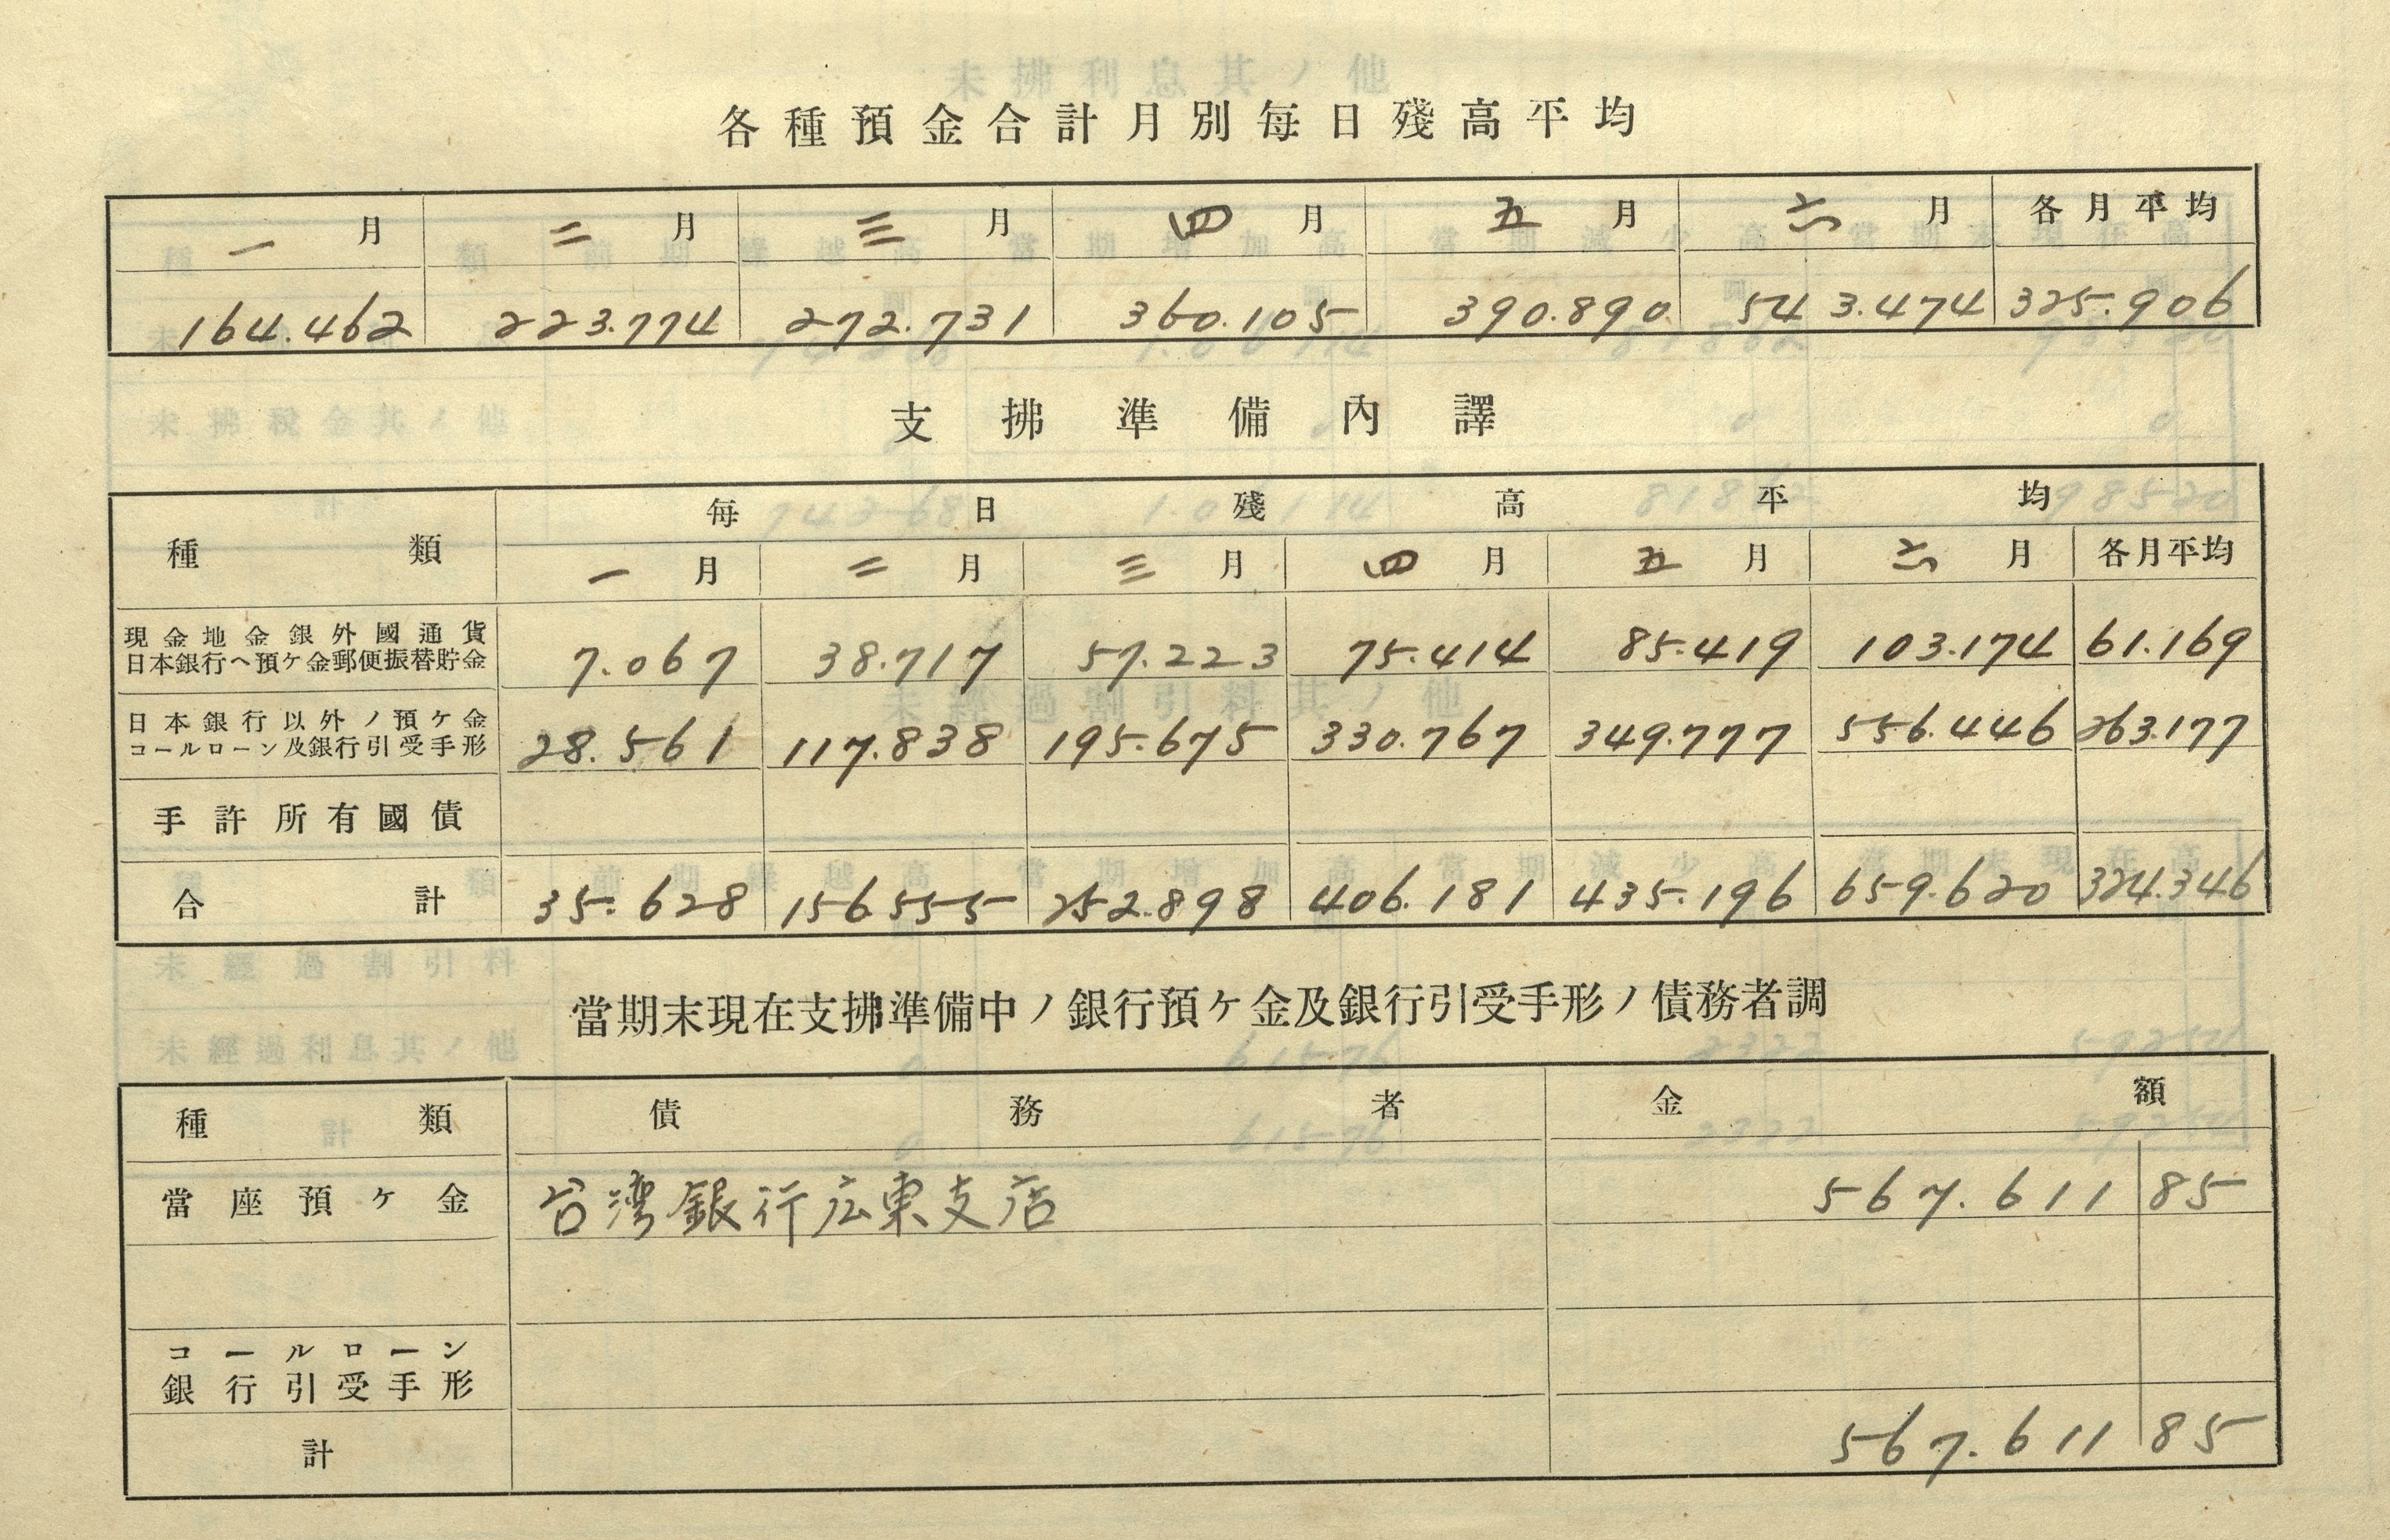 各種預金合計月別每日殘高平均
一月 二月 三月 四月 五月 六月 各月平均
164.462 223.774 272.731 360.105 390.890 543.474 325.906
支拂準備內譯
種類 每日殘高平均
一月 二月 三月 四月 五月 六月 各月平均
現金地金銀外國通貨
日本銀行ヘ預ケ金郵便振替貯金 7.067 38.717 57.223 75.414 85.419 103.174 61.169
日本銀行以外ノ預ケ金
コールローン及銀行引受手形 28.561 117.838 195.675 330.767 349.777 556.446 263.177
手許所有國債
合計 35.628 156.555 252.898 406.181 435.196 659.620 324.346
當期末現在支拂準備中ノ銀行預ケ金及銀行引受手形ノ債務者調
種類 債務者 金額
當座預ケ金 台湾銀行広東支店 567.611 85
コールローン
銀行引受手形
計 567.611 85